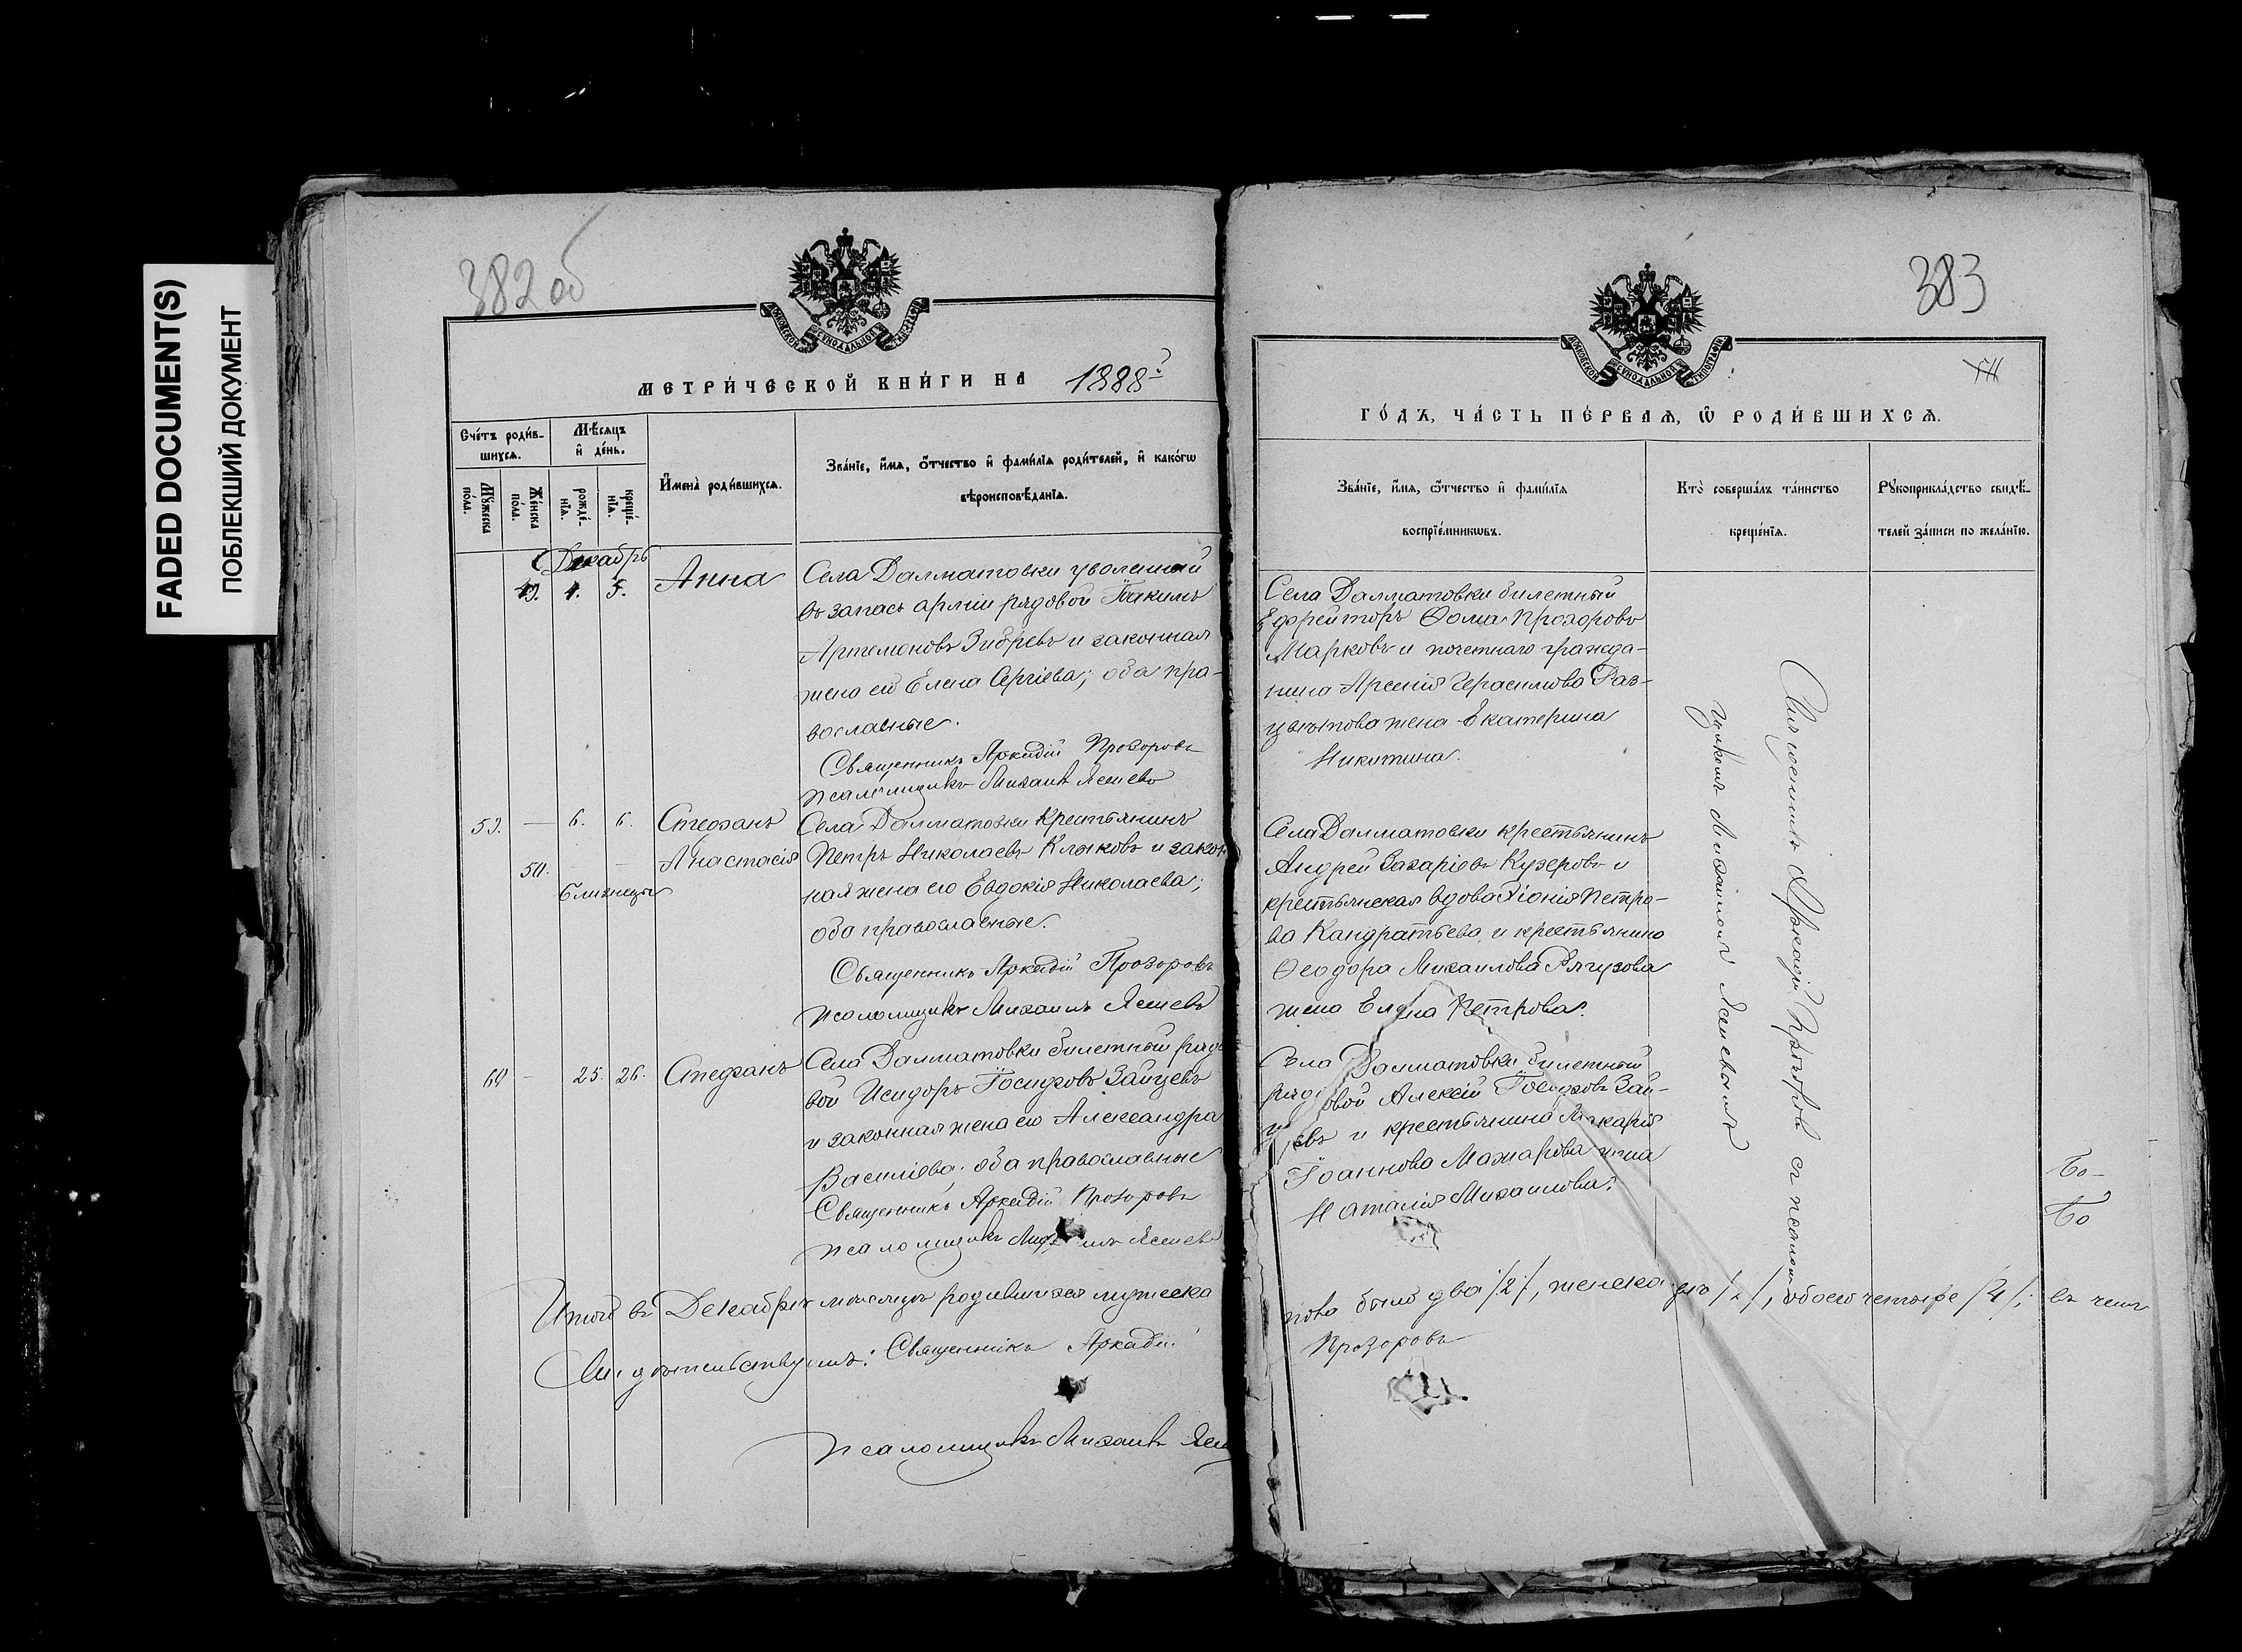 FADED DOCUMENT(S)
ПОБЛЕКШИЙ ДОКУМЕНТ
382 об
МЕТРИ́ЧЕСКОЙ КНИ́ГИ НА 1888
Сче́тъ роди́в-
шихся.
Мѣ́сяцъ
и҆ де́нь.
Мꙋ́жеска
по́ла.
Же́нска
по́ла.
рожде́-
нїѧ.
креще́-
нїѧ.
И҆мена̀ роди́вшихсѧ.
Зва́нїе, и҆́мѧ, ѻ҆́тчество и҆ фами́лїѧ роди́телей, и҆ како́гѡ
вѣроисповѣ́данїѧ.
Декабрь
49. 4. 5. Анна
Села Далматовки уволенный
въ запасъ арміи рядовой Іакимъ
Артемоновъ Зибревъ и законная
жена его Елена Сергіева; оба пра-
вославные.
Священникъ Аркадій Прозоровъ
псаломщикъ Михаилъ
59. — 6. 6. Стефанъ
50. — — Анастасія
близнецы
Села Далматовки крестьянинъ
Петръ Николаевъ Клоковъ и закон
ная жена его Евдокія Николаева;
оба православные.
Священникъ Аркадій Прозоровъ
псаломщикъ Михаилъ
60 — 25. 26. Стефанъ
Села Далматовки билетный рядо
вой Исидоръ Іосифовъ Зайцевъ
и законная жена его Александра
Василіева; оба православные
Священникъ Аркадій Прозоровъ
псаломщикъ
Итого въ Декабрѣ месяцѣ родившихся мужеска
Свидѣтельствуемъ: Священникъ Аркадій
псаломщикъ Михаилъ
383
ГО́ДЪ, ЧА́СТЬ ПЕ́РВАѦ, Ѡ҆ РОДИ́ВШИХСѦ.
Зва́нїе, и҆́мѧ, ѻ҆́тчество и҆ фами́лїѧ
воспрїе́мникѡвъ.
Кто̀ соверша́лъ та́инство
креще́нїѧ.
Рꙋкоприкла́дство свидѣ́-
телей за́писи по жела́нїю.
Села Далматовки билетный
Ефрейторъ Ѳома Прохоровъ
Марковъ и почетнаго гражда-
нина Арсенія Герасимова Раз-
цвѣтова жена Екатерина
Никитина.
Села Далматовки крестьянинъ
Андрей Захаріевъ Кузеровъ и
крестьянская вдова Хіонія Петро-
ва Кандратьева и крестьянина
Ѳеодора Михаилова Рягузова
жена Елена Петрова.
Села Далматовки билетный
рядовой Алексій Іосифовъ Зай-
цевъ и крестьянина Макарія
Іоаннова Макарова жена
Наталія Михаилова.
Священникъ Аркадій Прозоровъ съ псалом-
щикомъ Михаиломъ
пола было два /2/, женска два /2/, обоего четыре /4/; въ чемъ
Прозоровъ